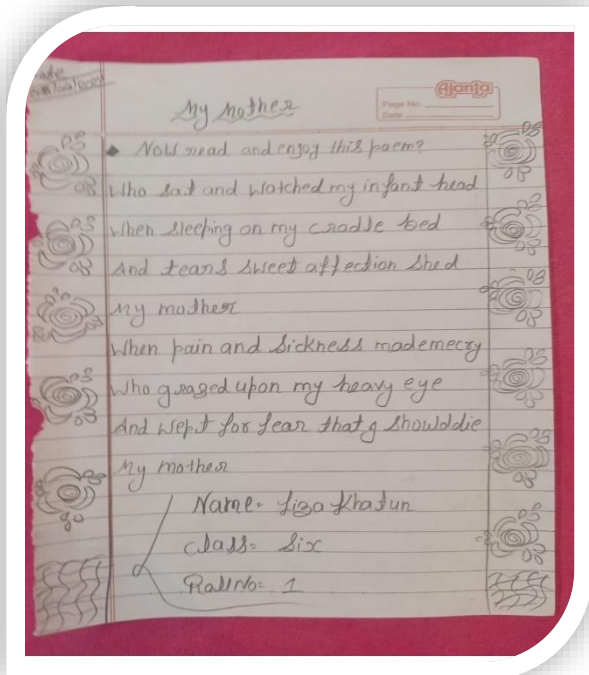 My Mother
Ajanta
Page No.
Date
Now read and enjoy this poem?
Who sat and watched my infant head
When sleeping on my cradle bed
And tears sweet affection shed
My mother
When pain and sickness mademecry
Who geazed upon my heavy eye
And wept for fear that g showddie
My mother
Name- Liza Khatun
Class= Six
Roll No= 1